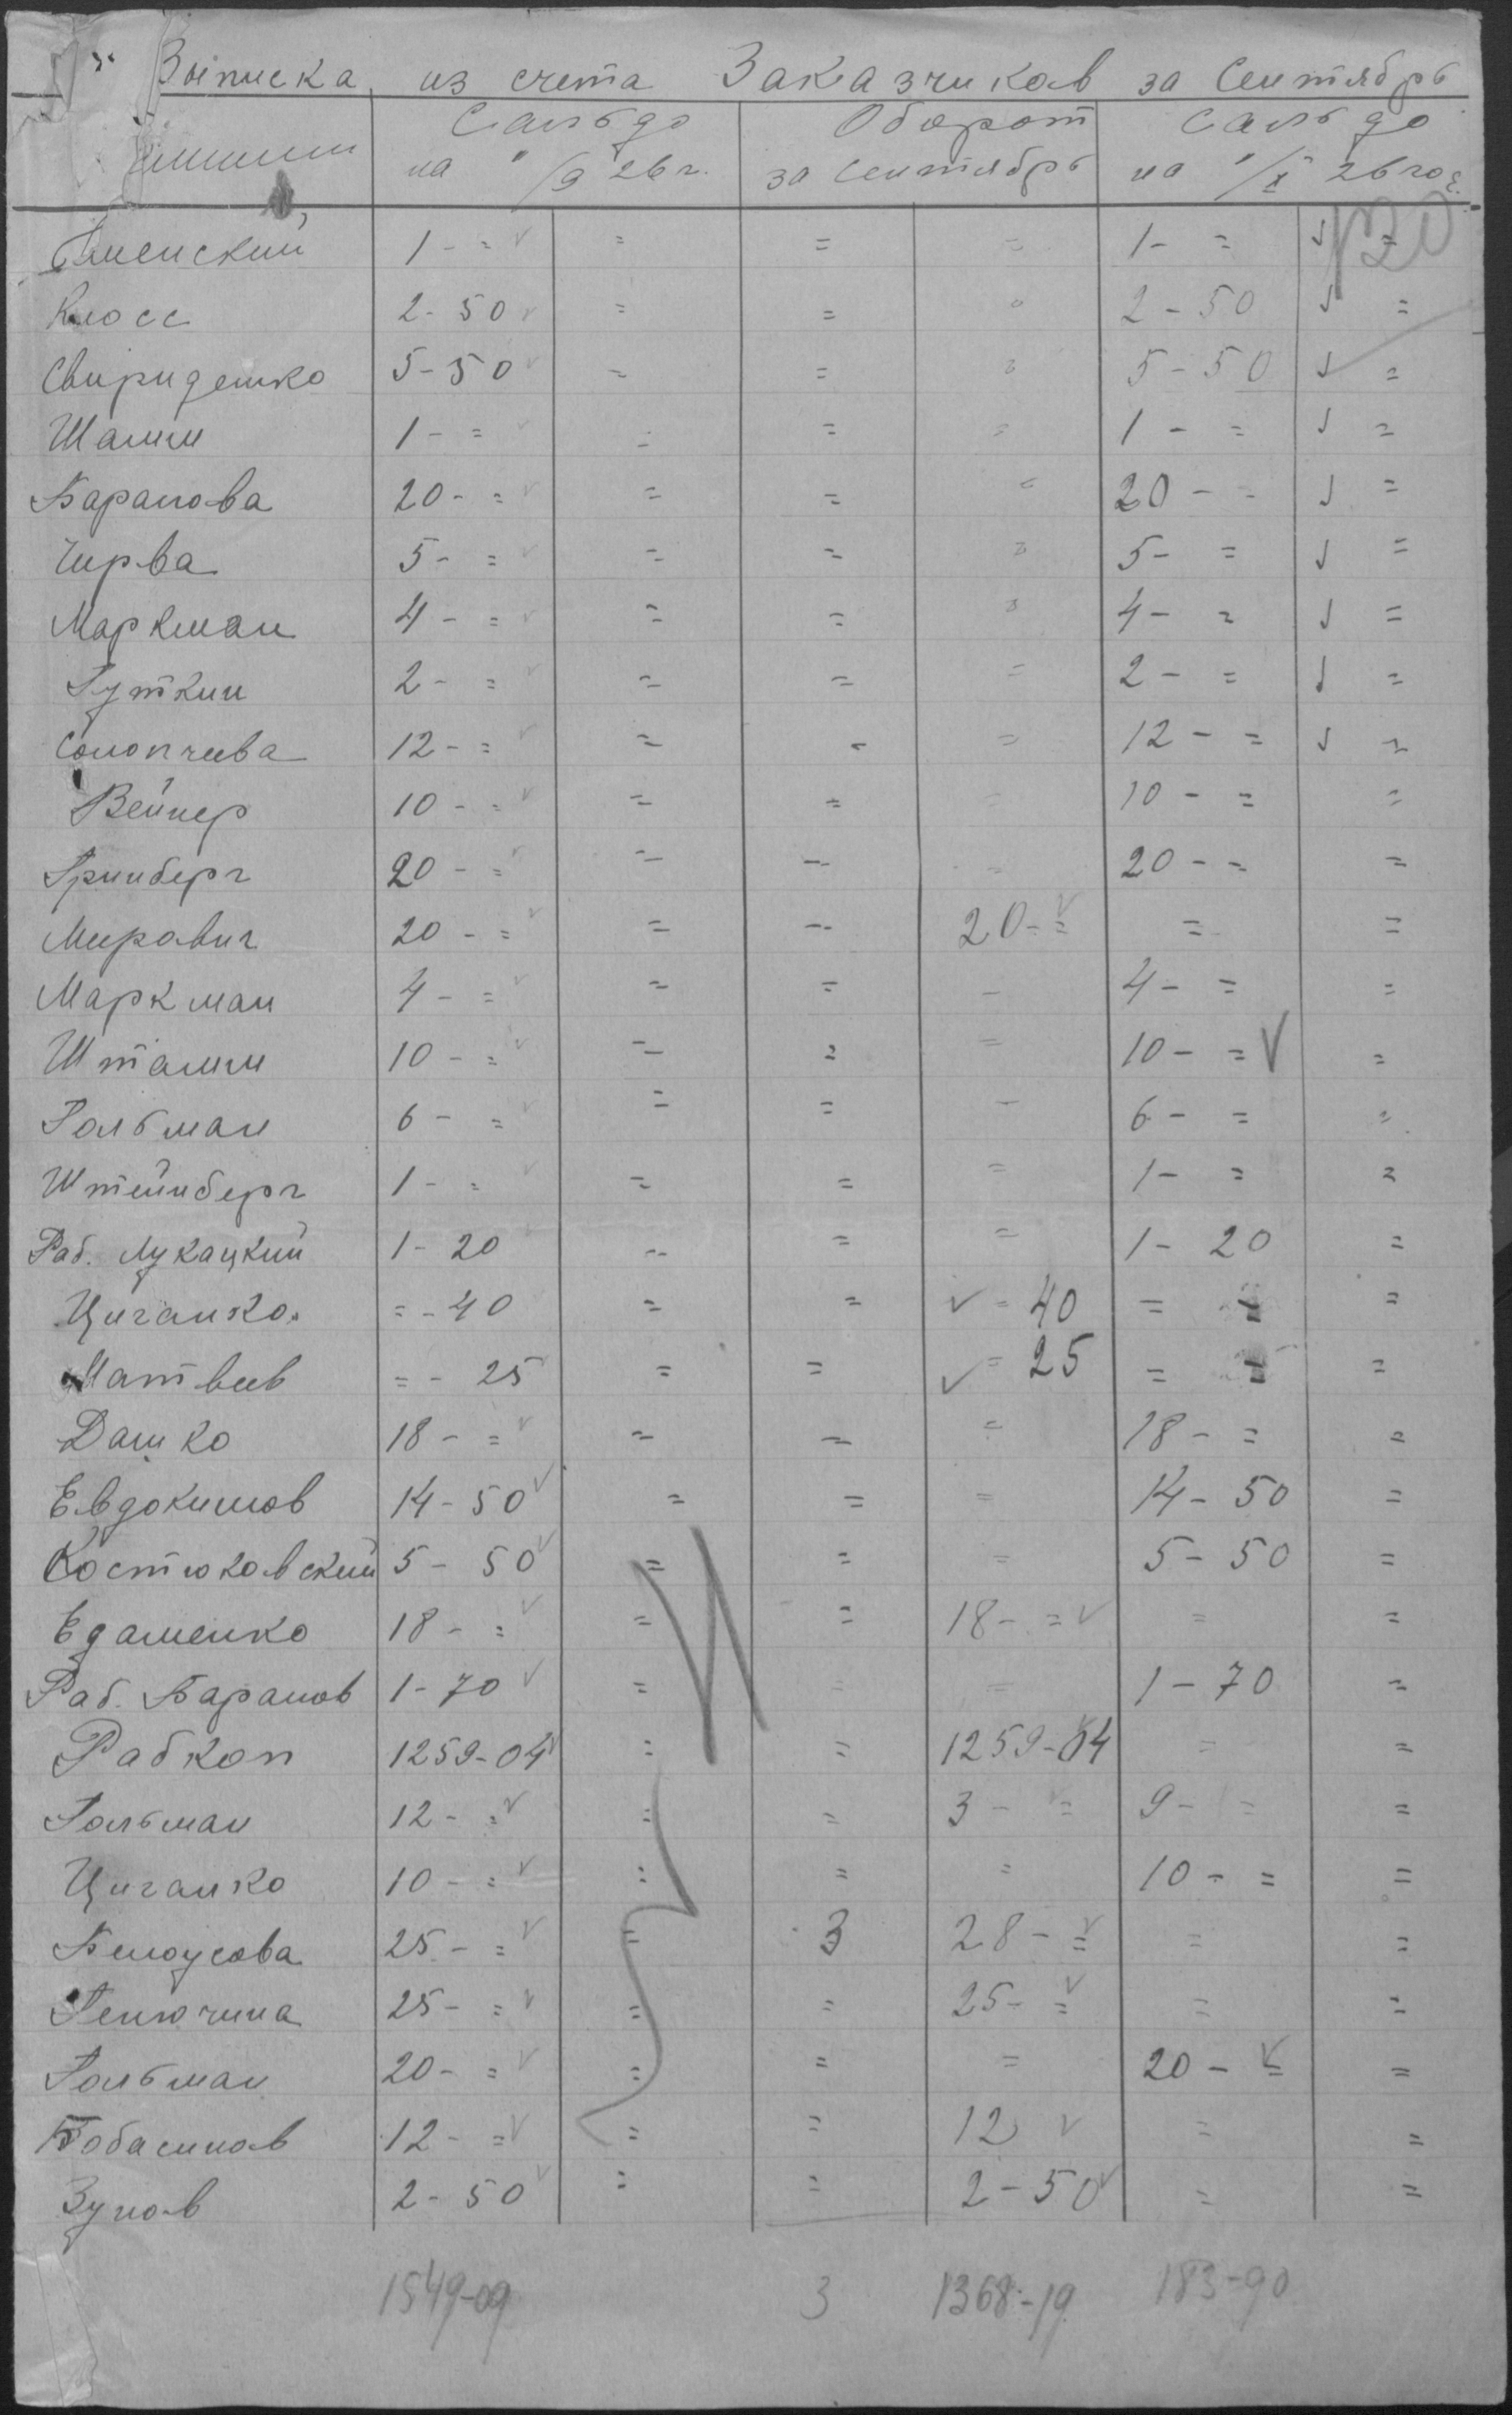 Выписка из счета Заказчиков за Сентябрь
Сальдо Оборот Сальдо
на 1/9 26 г. за Сентябрь на 1/X 26 год.
120
Каменский 1 - = = = = 1 - = =
Клосс 2 - 50 = = = 2 - 50 =
Свириденко 5 - 50 = = = 5 - 50 =
Шамин 1 - = = = = 1 - = =
Баранова 20 - = = = = 20 - = =
Чирва 5 - = = = = 5 - = =
Маркман 4 - = = = = 4 - = =
Гуткин 2 - = = = = 2 - = =
Солопчева 12 - = = = = 12 - = =
Вейнер 10 - = = = = 10 - = =
Гринберг 20 - = = = = 20 - = =
Мирович 20 - = = = 20 - = = =
Маркман 4 - = = = = 4 - = =
Штамм 10 - = = = = 10 - = =
Гольман 6 - = = = = 6 - = =
Штейнберг 1 - = = = = 1 - = =
Раб. Лукацкий 1 - 20 = = = 1 - 20 =
Циганко = - 40 = = = 40 = = =
Матвеев = - 25 = = = 25 = = =
Дашко 18 - = = = = 18 - = =
Евдокимов 14 - 50 = = = 14 - 50 =
Костюковский 5 - 50 = = = 5 - 50 =
Едаменко 18 - = = = 18 - = = =
Раб. Баранов 1 - 70 = = = 1 - 70 =
Рабкоп 1259 - 04 = = 1259 - 04 = =
Гольман 12 - = = = 3 - = 9 - = =
Циганко 10 - = = = = 10 - = =
Белоусова 25 - = = 3 28 - = = =
Генючина 25 - = = = 25 - = = =
Гольман 20 - = = = = 20 - = =
Бобасинов 12 - = = = 12 = =
Зунов 2 - 50 = = 2 - 50 = =
1549-09 3 1368-19 183-90